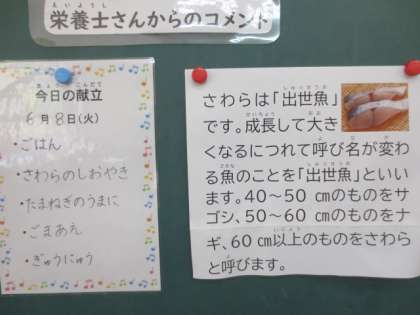 栄養士さんからのコメント
今日の献立
6月8日(火)
・ごはん
・さわらのしおやき
・たまねぎのうまに
・ごまあえ
・ぎゅうにゅう
さわらは「出世魚」
です。成長して大き
くなるにつれて呼び名が変わ
る魚のことを「出世魚」といい
ます。40~50 ㎝のものをサ
ゴシ、50~60 ㎝のものをナ
ギ、60 ㎝以上のものをさわら
と呼びます。